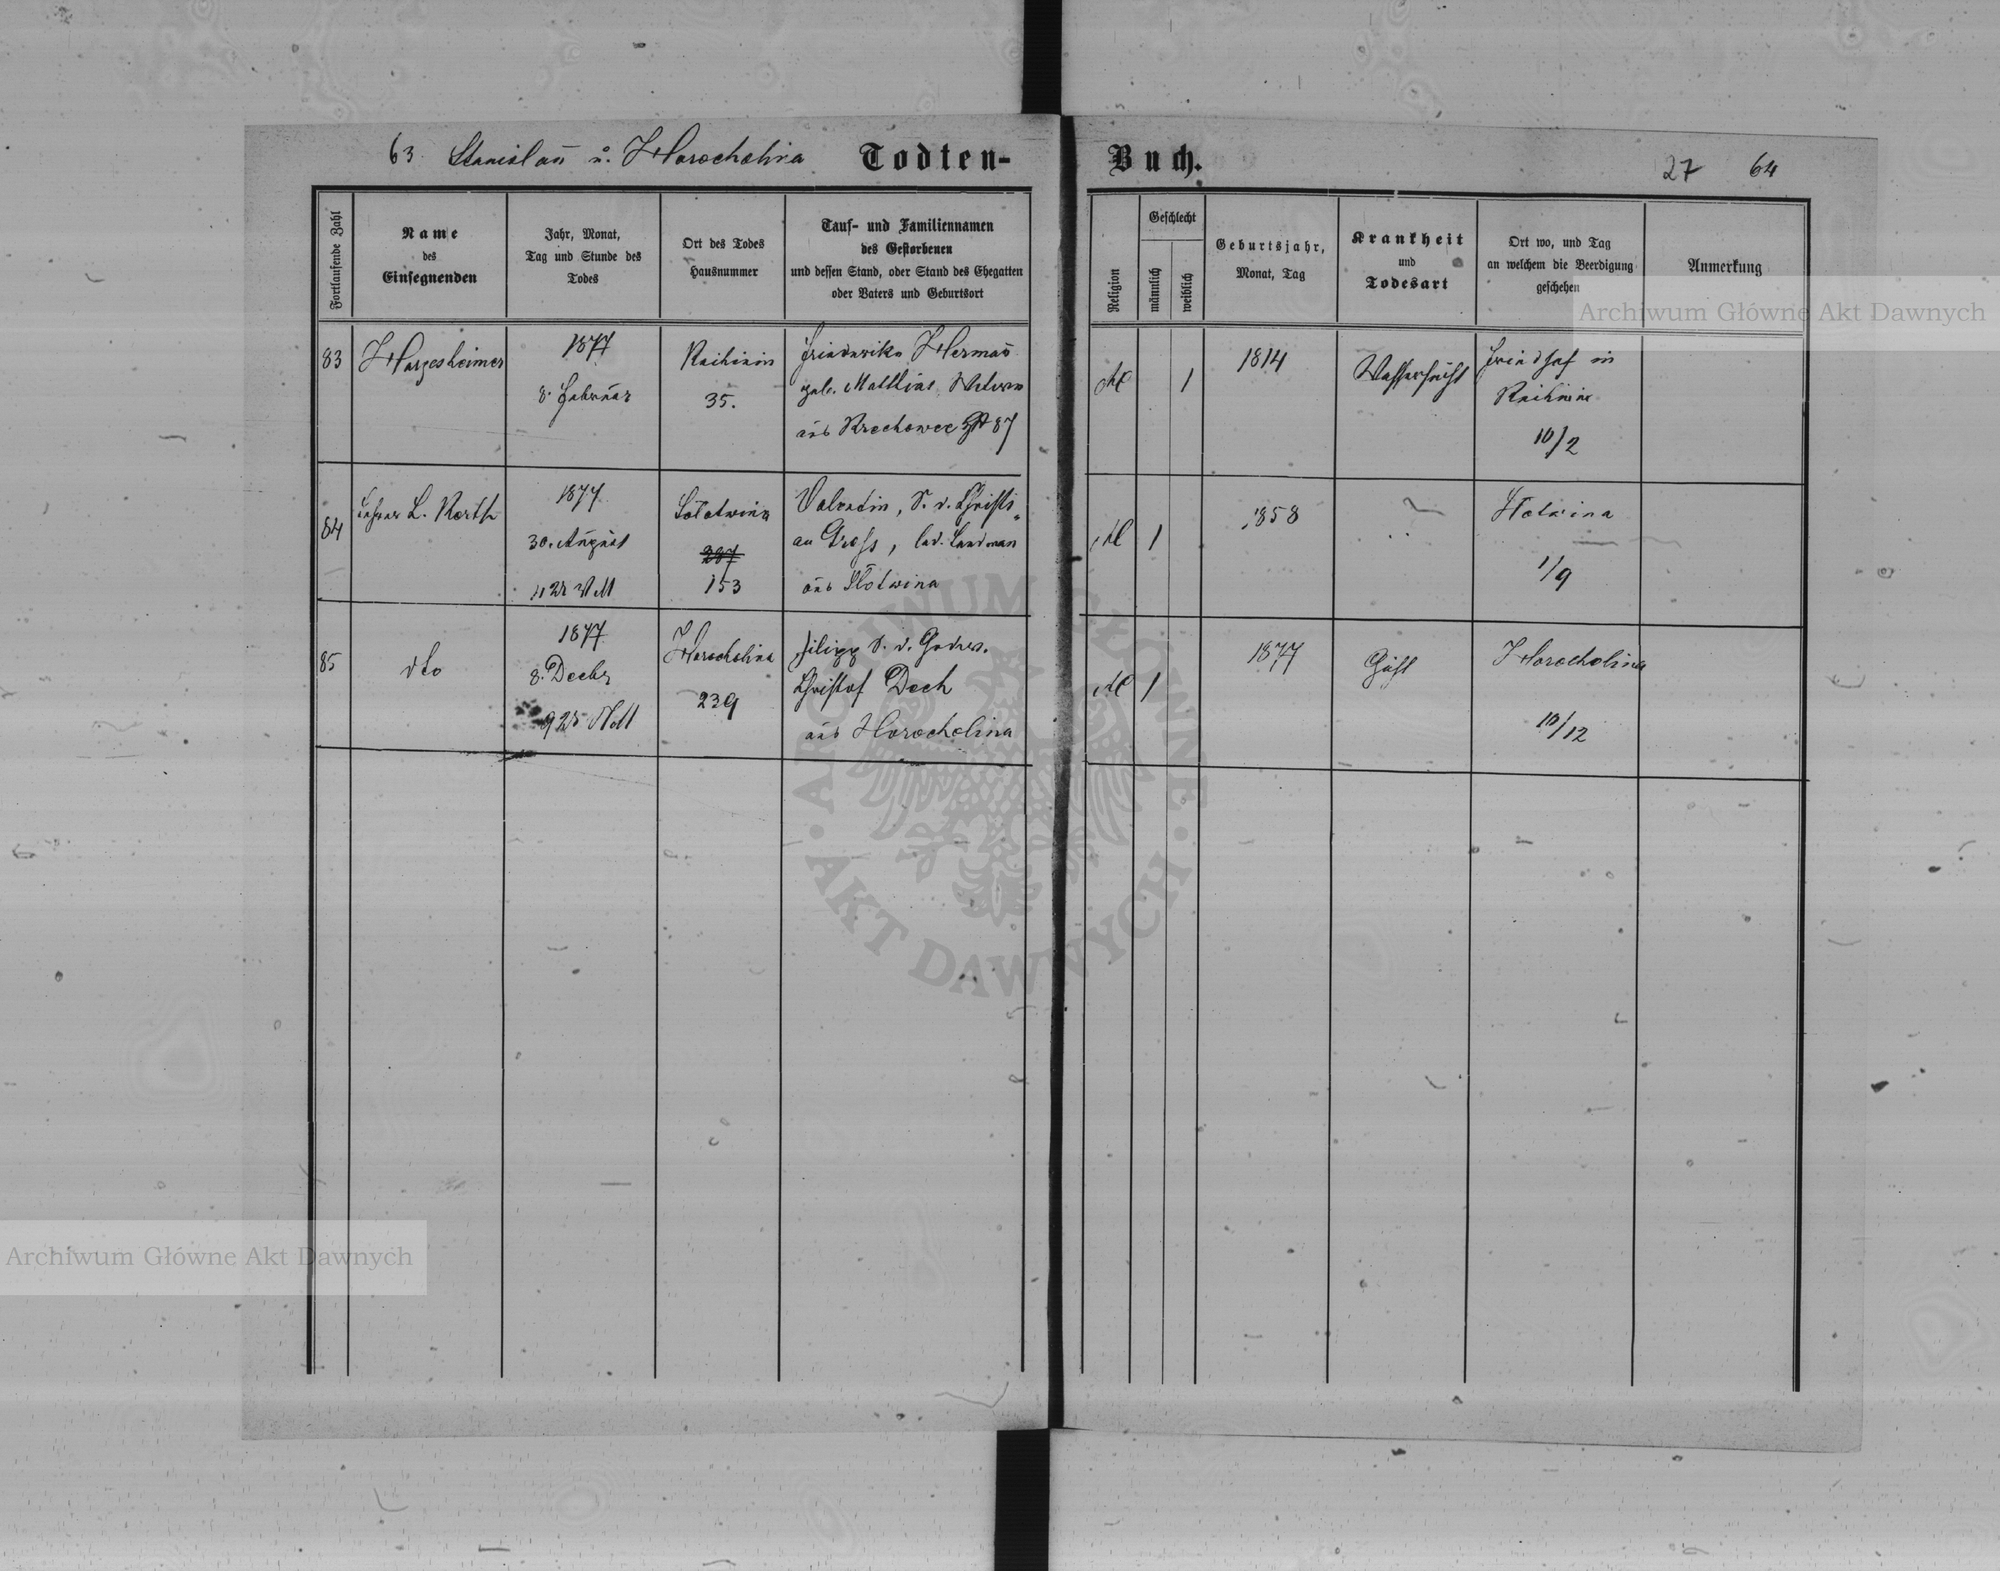 63. Stanislau u. Horocholina Todten-
Buch.
27 64
Fortlaufende Zahl
Name
des
Einsegnenden
Jahr, Monat,
Tag und Stunde des
Todes
Ort des Todes
Hausnummer
Tauf- und Familiennamen
des Gestorbenen
und dessen Stand, oder Stand des Ehegatten
oder Vaters und Geburtsort
Religion
Geschlecht
männlich
weiblich
Geburtsjahr,
Monat, Tag
Krankheit
und
Todesart
Ort wo, und Tag
an welchem die Beerdigung
geschehen
Anmerkung
83
Hargesheimer
1877
8. Februar
35.
Friederike Herman
Mathias
aus Krechowce 87
1
1814
Wassersucht
Friedhof in
10/2
84
L. Korth
1877
30. August
153
Valentin, S. v. Christi-
an Gross, led. Landman
aus Slotwina
1
1858
?
1/9
85
dto
1877
8. Decbr
Horocholina
239
Filipp S. v.
Christof Dech
aus Horocholina
1
1877
Horocholina
10/12
Archiwum Główne Akt Dawnych
Archiwum Główne Akt Dawnych
ARCHIWUM GŁÓWNE
AKT DAWNYCH